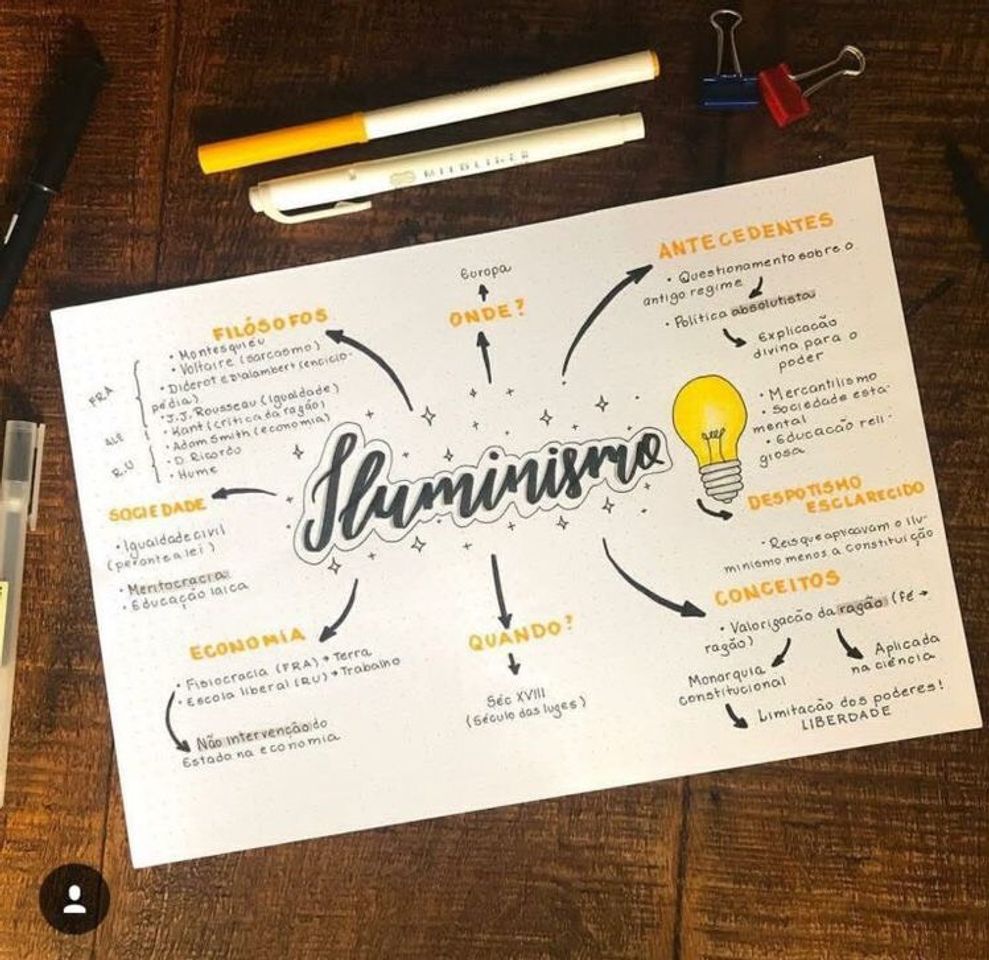 MILDLINER
ANTECEDENTES
• Questionamento sobre o
antigo regime
• Política absolutista
Explicação
divina para o
poder
• Mercantilismo
• Sociedade esta-
mental
• Educação reli-
giosa
Europa
ONDE?
FILÓSOFOS
• Montesquieu
• Voltaire (sarcasmo)
• Diderot e D'alambert (enciclo-
pédia)
• J.J. Rousseau (Igualdade)
• Kant (crítica da razão)
• Adam Smith (economia)
• D. Ricardo
• Hume
FRA
ALE
R.U
Iluminismo
SOCIEDADE
• Igualdade civil
(perante a lei)
• Meritocracia
• Educação laica
DESPOTISMO
ESCLARECIDO
• Reis que aplicavam o ilu-
minismo menos a constituição
ECONOMIA
• Fisiocracia (FRA) → Terra
• Escola liberal (RU) → Trabalho
Não intervenção do
Estado na economia
QUANDO?
Séc XVIII
(Século das luzes)
CONCEITOS
• Valorização da razão (Fé →
razão)
Monarquia
constitucional
Aplicada
na ciência
Limitação dos poderes!
LIBERDADE